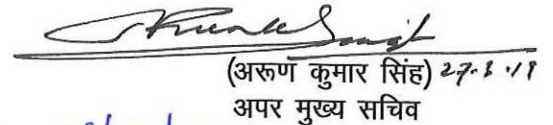 (अरूण कुमार सिंह) 27.3.19
अपर मुख्य सचिव